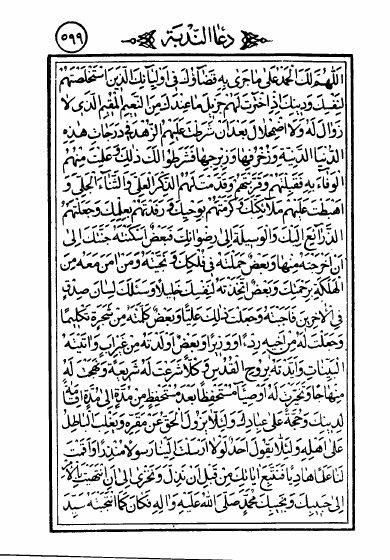 ٥٩٩
دعاء الندبة
اللهم لك الحمد على ما جرى به قضاؤك في اوليائك الذين استخلصتهم
لنفسك ودينك اذ اخترت لهم جزيل ما عندك من النعيم المقيم الذى لا
زوال له ولا اضمحلال بعد ان شرطت عليهم الزهد في درجات هذه
الدنيا الدنية وزخرفها وزبرجها فشرطوا لك ذلك وعلمت منهم
الوفاء به فقبلتهم وقربتهم وقدمت لهم الذكر العلى والثناء الجلى و
اهبطت عليهم ملائكتك وكرمتهم بوحيك ورفدتهم بعلمك وجعلتهم
الذرائع اليك والوسيلة الى رضوانك فبعض اسكنته جنتك الى
ان اخرجته منها وبعض حملته في فلكك ونجيته ومن امن معه من
الهلكة برحمتك وبعض اتخذته لنفسك خليلا وسئلك لسان صدق
في الاخرين فاجبته وجعلت ذلك عليا وبعض كلمته من شجرة تكليما
وجعلت له من اخيه ردءا ووزيرا وبعض اولدته من غير اب واتيته
البينات وايدته بروح القدس وكلا شرعت له شريعة ونهجت له
منهاجا وتخيرت له اوصياء مستحفظا بعد مستحفظ من مدة الى مدة اقامة
لدينك وحجة على عبادك ولئلا يزول الحق عن مقره ويغلب الباطل
على اهله ولئلا يقول احد لولا ارسلت الينا رسولا منذرا واقمت
لنا علما هاديا فنتبع اياتك من قبل ان نذل ونخزى الى ان انتهيت بالامر
الى حبيبك ونجيبك محمد صلى الله عليه واله فكان كما انتجبته سيد